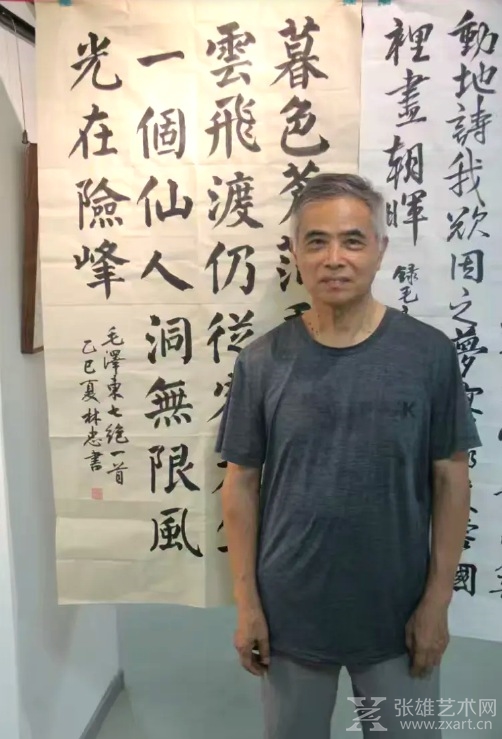 動地詩我欲因之夢寥廓芙蓉國
裡盡朝暉
錄毛
暮色蒼茫
雲飛渡仍從容天生
一個仙人洞無限風
光在險峰
毛澤東七絕一首
乙巳夏林忠書
K
张雄艺术网
www.zxart.cn